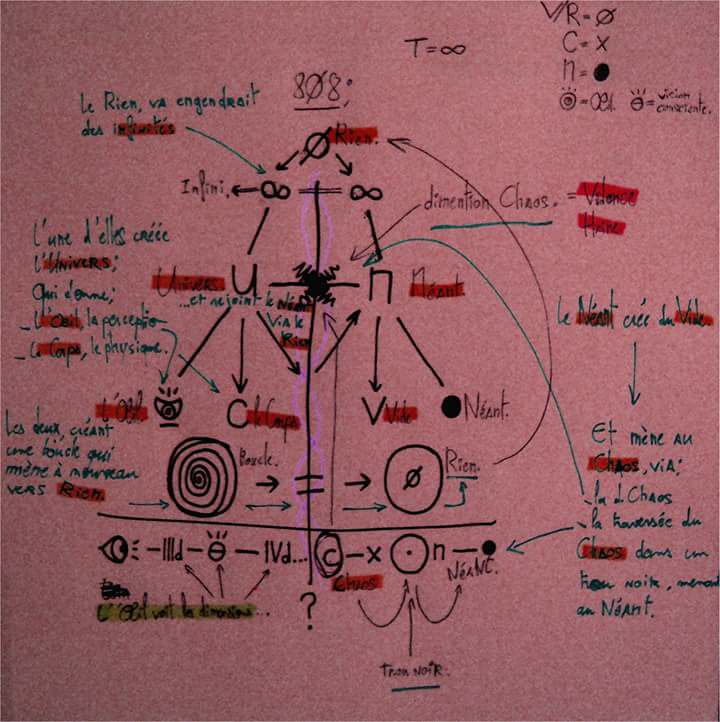 T=∞
V/R=Ø
C=x
n=●
=Œil.
=vision
consciente.
8Ø8;
Le Rien, va engendrait
des infinités
Ø Rien.
Infini. ← ∞ ∞
dimention Chaos. = Violence
Haine
L'une d'elles créée
L'Univers;
Qui donne;
_L'Oeil, la perception
_Le Corps, le physique.
Univers U n Néant
...et rejoint le Néant
Via le
Rien
Le Néant crée du Vide
L'Œil C le Corps V Vide ● Néant.
Les deux, créant
une boucle qui
mène à nouveau
vers Rien.
Boucle. = Ø Rien.
Et mène au
Chaos, via;
_la d Chaos
_la traversée du
Chaos dans un
trou noir, menant
au Néant.
IIId IVd... C x n ●
Chaos
NÉANT.
L'Œil voit la dimension...
?
Trou NOIR.